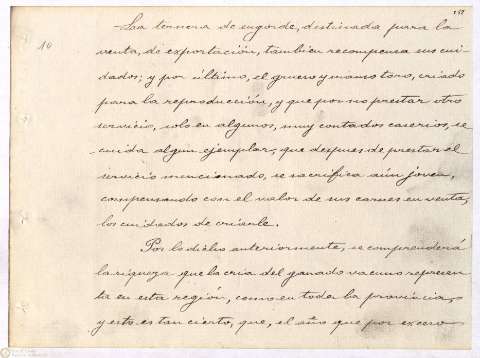 La ternera de engorde, destinada para la
10
venta, de exportación, tambien recompensa sus cui-
dados; y por último, el grueso y manso toro, criado
para la reproducción, y que por no prestar otro
servicio, solo en algunos, muy contados caserios, se
cuida algun ejemplar, que despues de prestar el
servicio mencionado, se sacrifica aún joven,
compensando con el valor de sus carnes en venta,
los cuidados de criarle.
Por lo dicho anteriormente, se comprenderá
la riqueza que la cria del ganado vacuno represen
ta en esta región, como en toda la provincia,
y esto es tan cierto, que, el año que por exceso